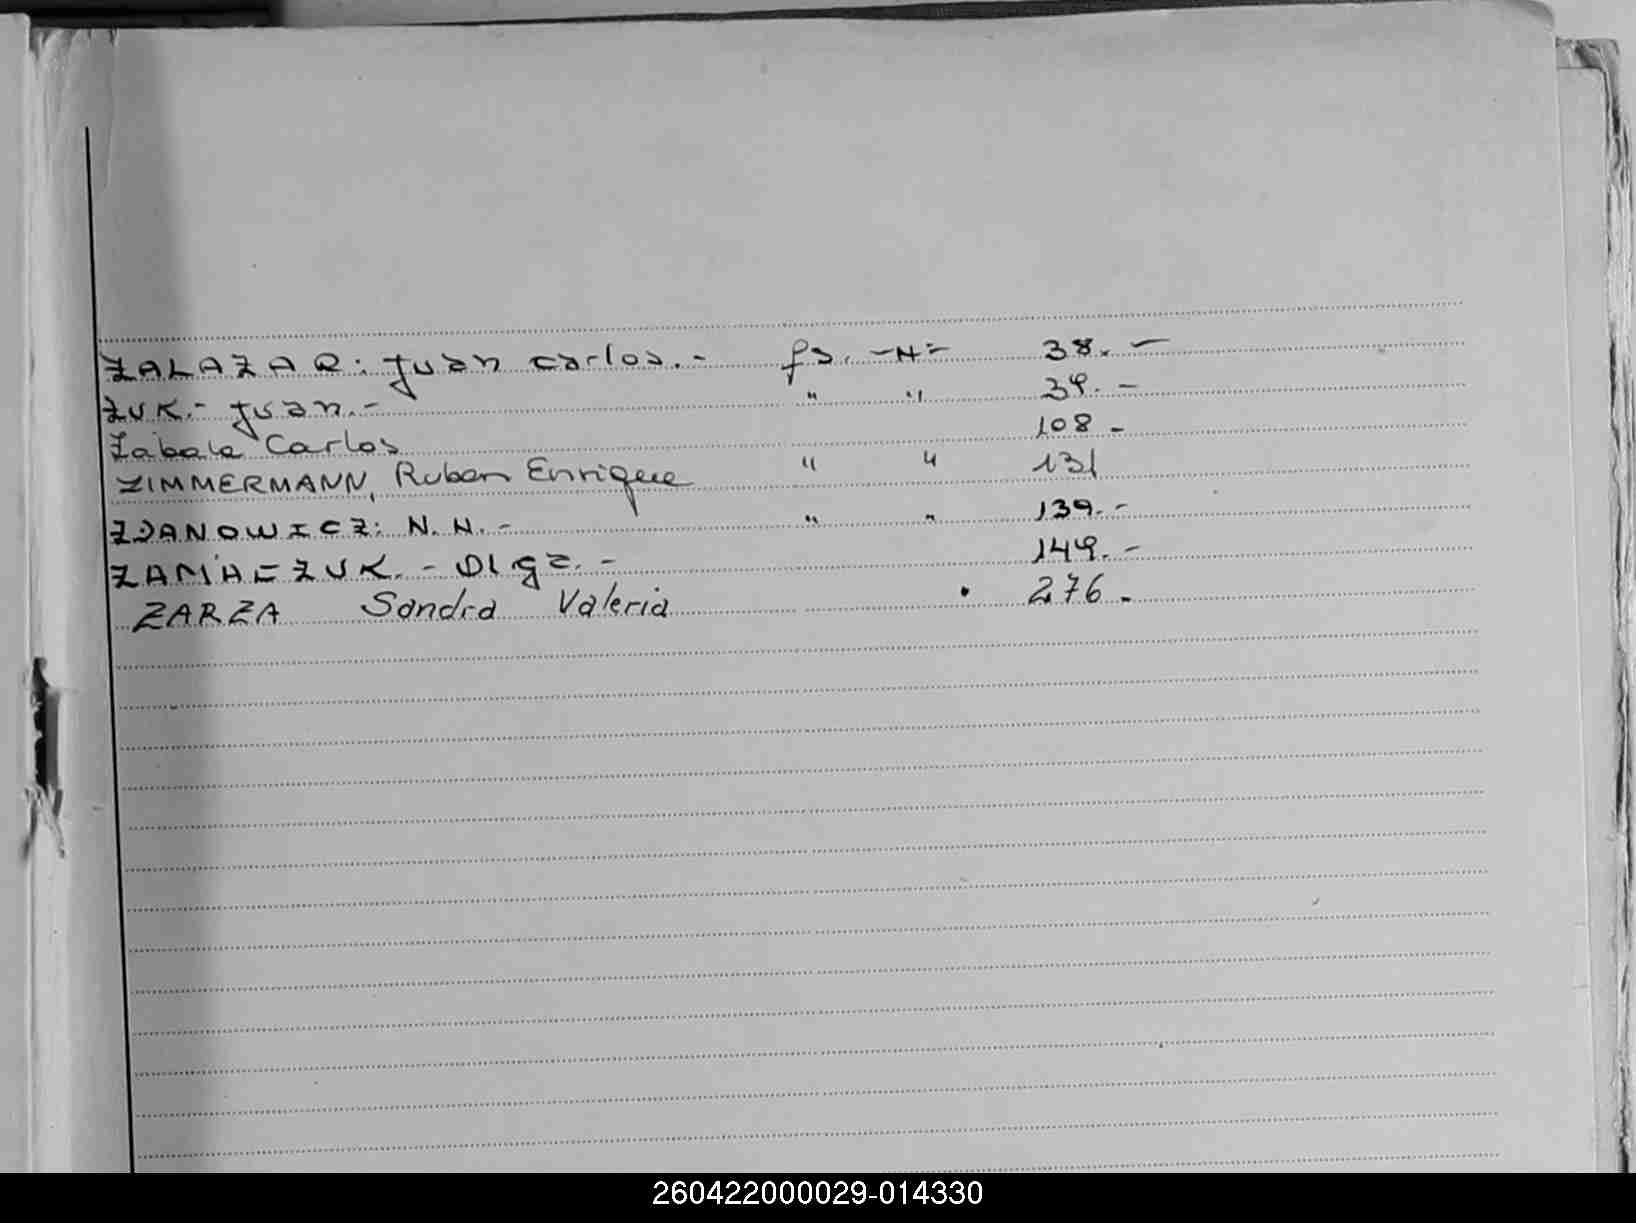 ZALAZAR: Juan Carlos.- fs. -N=- 38.-
ZUK.- Juan.- " " 39.-
Zabala Carlos 108-
ZIMMERMANN, Ruben Enrique " " 131
ZDANOWICZ: N.N.- " " 139.-
Olga.- 149.-
ZARZA Sandra Valeria . 276.-
260422000029-014330